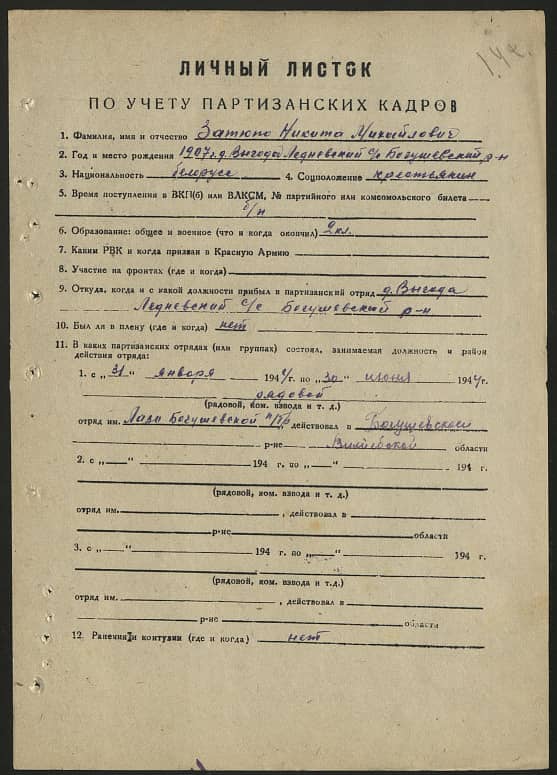 ЛИЧНЫЙ ЛИСТОК
ПО УЧЕТУ ПАРТИЗАНСКИХ КАДРОВ
1. Фамилия, имя и отчество Затюпо Никита Михайлович
2. Год и место рождения 1907 г. д. Выгода Ледневский с/с Богушевский р-н
3. Национальность белорусс 4. Соцположение крестьянин
5. Время поступления в ВКП(б) или ВЛКСМ, № партийного или комсомольского билета
б/п
6. Образование: общее и военное (что и когда окончил) 2 кл.
7. Каким РВК и когда призван в Красную Армию
8. Участие на фронтах (где и когда)
9. Откуда, когда и с какой должности прибыл в партизанский отряд д. Выгода
Ледневский с/с Богушевский р-н
10. Был ли в плену (где и когда) нет
11. В каких партизанских отрядах (или группах) состоял, занимаемая должность и район
действия отряда:
1. с „31“ января 1944 г. по „30“ июня 1944 г.
рядовой
(рядовой, ком. взвода и т. д.)
отряд им. Лазо Богушевской п/бр, действовал в Богушевском
р-не Витебской области
2. с „ “ 194 г. по „ “ 194 г.
(рядовой, ком. взвода и т. д.)
отряд им. , действовал в
р-не области
3. с „ “ 194 г. по „ “ 194 г.
(рядовой, ком. взвода и т.д.)
отряд им. , действовал в
р-не области
12. Ранения и контузии (где и когда) нет